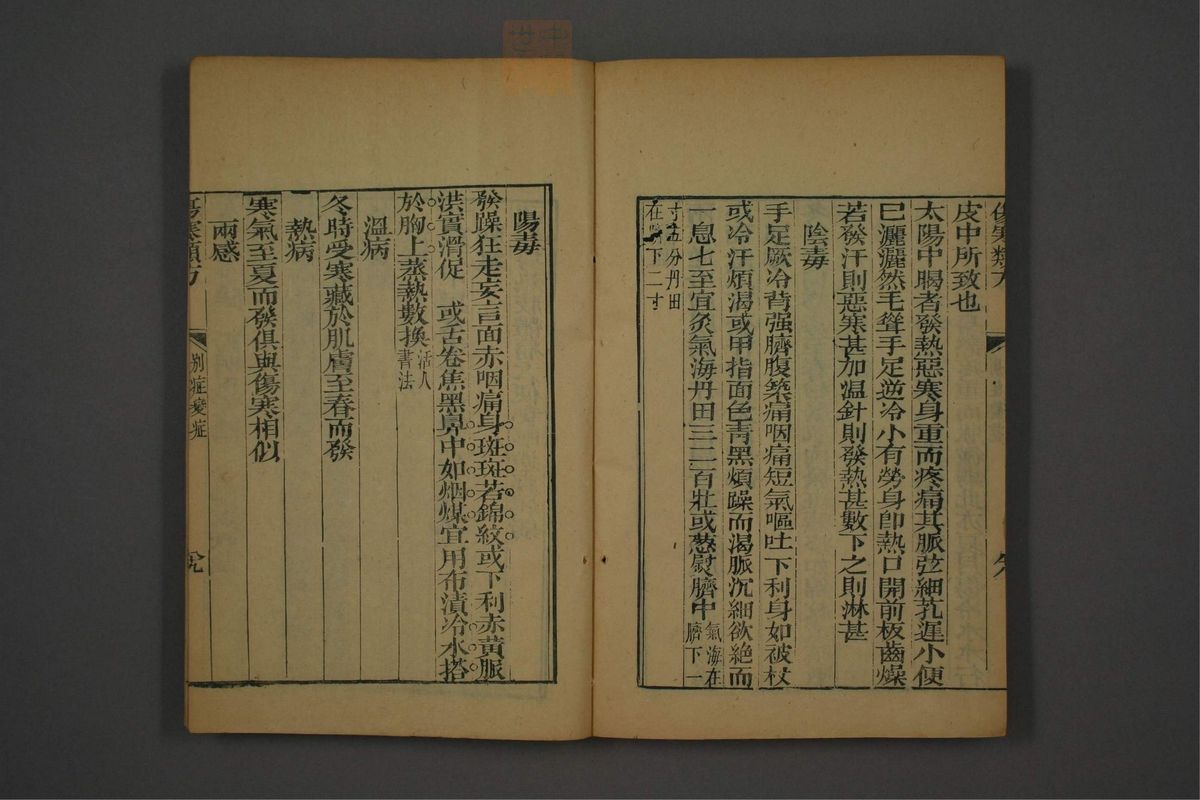 傷寒類方
皮中所致也
太陽中暍者發熱惡寒身重而疼痛其脈弦細芤遲小便
巳灑灑然毛聳手足逆冷小有勞身即熱口開前板齒燥
若發汗則惡寒甚加溫針則發熱甚數下之則淋甚
陰毒
手足厥冷背强臍腹築痛咽痛短氣嘔吐下利身如被杖
或冷汗煩渴或甲指面色靑黑煩躁而渴脈沉細欲絶而
一息七至宜灸氣海丹田三二百壯或葱熨臍中氣海在臍下一
寸五分丹田在臍下二寸
陽毒
發躁狂走妄言面赤咽痛身斑斑若錦紋或下利赤黃脈
洪實滑促 或舌卷焦黑鼻中如烟煤宜用布漬冷水搭
於胸上蒸熱數換活人書法
溫病
冬時受寒藏於肌膚至春而發
熱病
寒氣至夏而發俱與傷寒相似
兩感
傷寒類方
別症變症